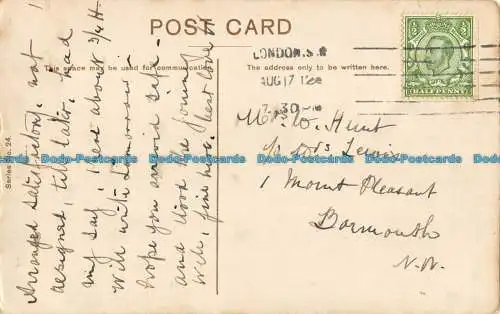 POST CARD
This space may be used for communication.
The address only to be written here.
LONDON. S.W
AUG 17 12
7.30
HALFPENNY
Series No. 24.
Arranged satisfaction, not
designed, till later. had
my say, I see about 3/4 H
Will write tomorrow
hope you arrived safe
and the
well, fine here. best love
Mr. W. Hunt
c/o Lewis
1 Mount Pleasant
Barmouth
N.W.
Dodo-Postcards Dodo-Postcards Dodo-Postcards Dodo-Postcards Dodo-Postcards